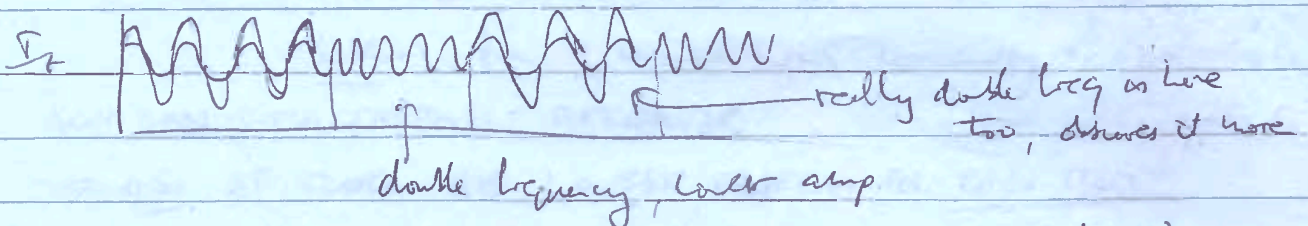 I_t
really double freq is here
too, obscures it more
double frequency, lower amp